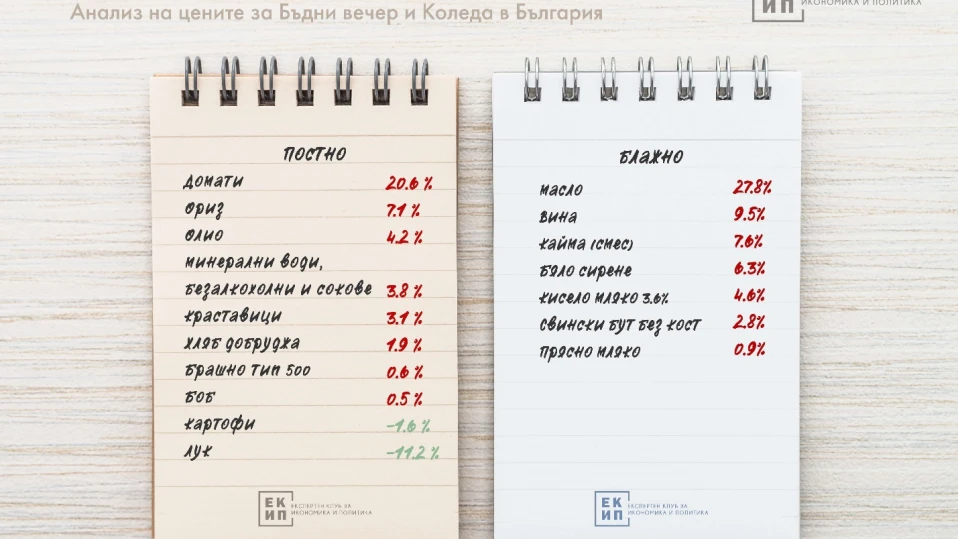 Анализ на цените за Бъдни вечер и Коледа в България
ИП ИКОНОМИКА И ПОЛИТИКА
ПОСТНО
домати 20.6 %
ориз 7.1 %
олио 4.2 %
минерални води,
безалкохолни и сокове 3.8 %
краставици 3.1 %
хляб добруджа 1.9 %
брашно тип 500 0.6 %
боб 0.5 %
картофи -1.6 %
лук -11.2 %
ЕК
ИП
ЕКСПЕРТЕН КЛУБ ЗА
ИКОНОМИКА И ПОЛИТИКА
БЛАЖНО
масло 27.8%
вина 9.5%
кайма (смес) 7.6%
бяло сирене 6.3%
кисело мляко 3.6% 4.6%
свински бут без кост 2.8%
прясно мляко 0.9%
ЕК
ИП
ЕКСПЕРТЕН КЛУБ ЗА
ИКОНОМИКА И ПОЛИТИКА